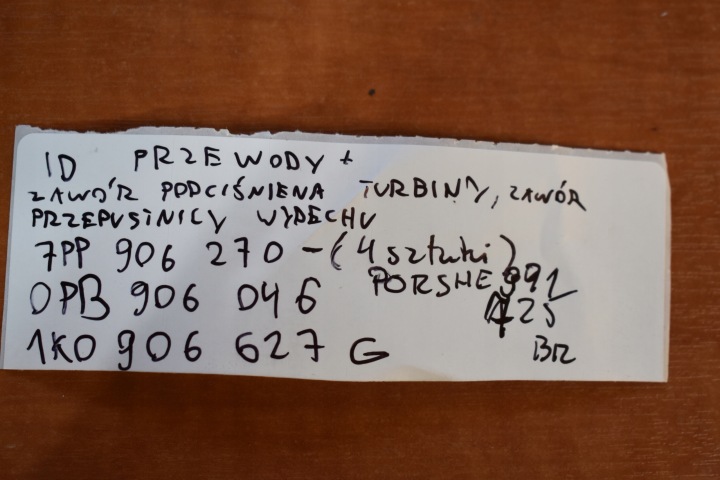 ID PRZEWODY +
ZAWÓR PODCIŚNIENA TURBINY, ZAWÓR
PRZEPUSTNICY WYDECHU
7PP 906 270 - (4 sztuki)
PORSHE 991
0PB 906 046
725
1K0 906 627 G
BR